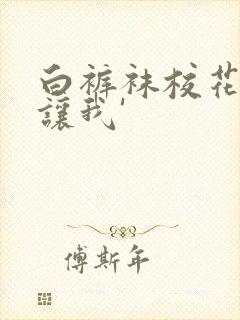 白裤袜校花
讓我'
傅斯年